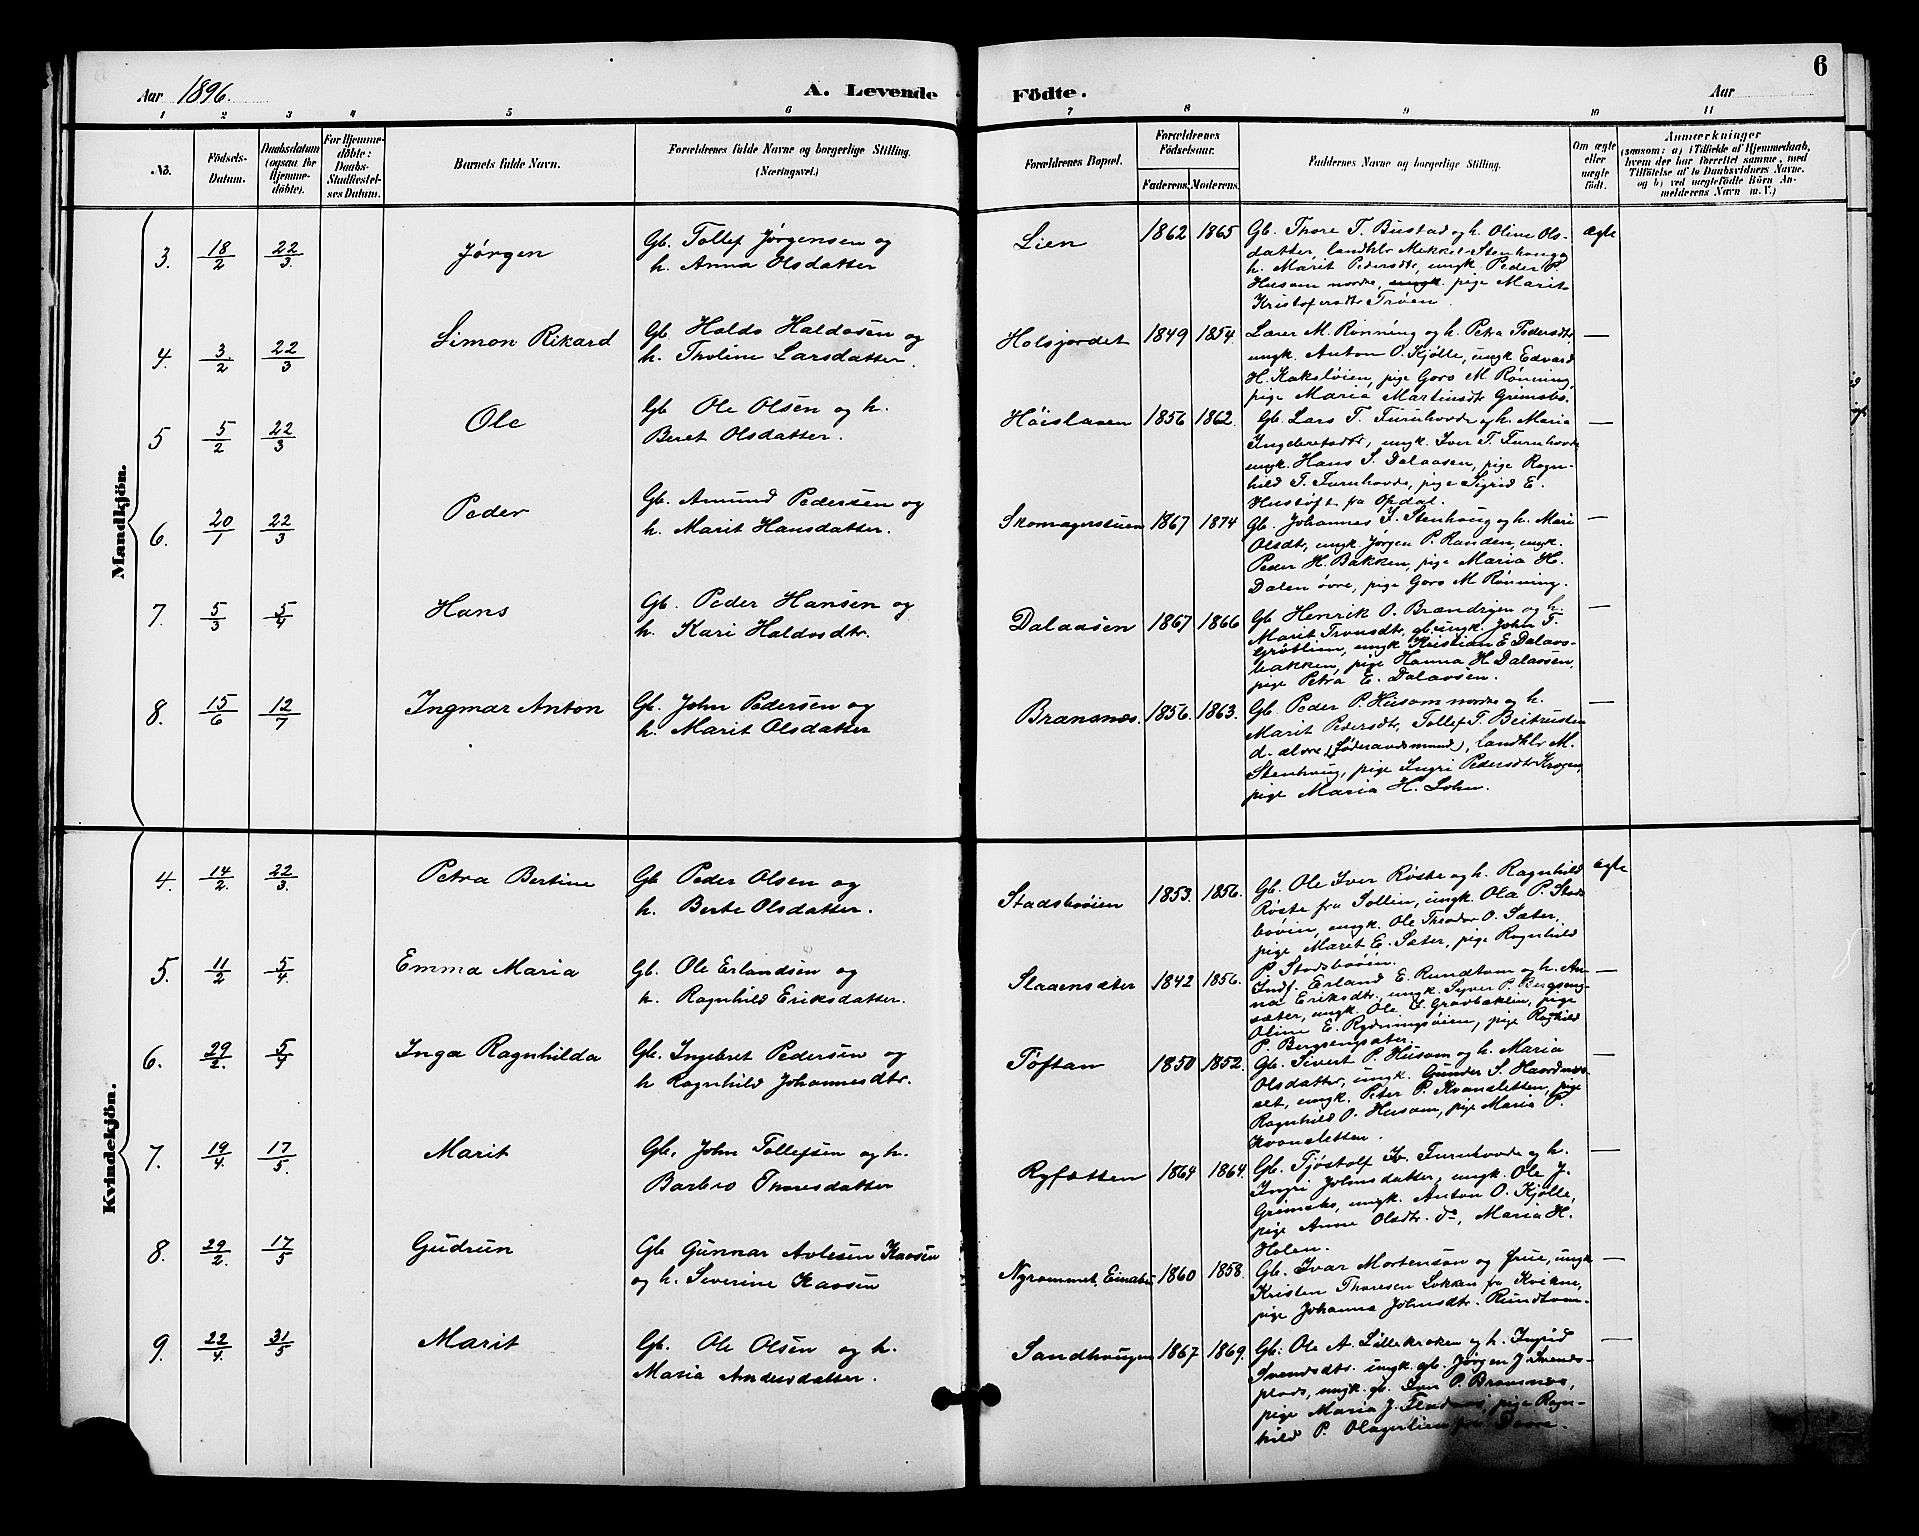 6
Aar 1896.
A. Levende
Födte.
Aar
1 2 3 4 5 6 7 8 9 10 11
No.
Födsels-
Datum.
Daabsdatum
(ogsaa for
Hjemme-
döbte).
For Hjemme-
döbte:
Daabs-
Stadfæstel-
ses Datum.
Barnets fulde Navn.
Forældrenes fulde Navne og borgerlige Stilling.
(Næringsvei.)
Forældrenes Bopæl.
Forældrenes
Födselsaar.
Faderens. Moderens.
Faddernes Navne og borgerlige Stilling.
Om ægte
eller
uægte
födt.
Anmærkninger
(saasom: a) i Tilfælde af Hjemmedaab,
hvem der har forrettet samme, med
Tilföielse af to Daabsvidners Navne.
og b) ved uægtefödte Börn An-
melderens Navn m. V.)
Mandkjön.
3. 18/2 22/3. Jørgen
Gb. Tollef Jørgensen og
h. Anna Olsdatter
Lien 1862 1865
Gb. Thore T. Bustad og h. Olive Ols-
datter, landhlr Mekkel Stenhoug og
h. Marit Pedersdtr, ungk. Peder P.
Husom nordre, ungk. pige Marit
Kristofersdtr Trøen.
ægte
4. 3/2 22/3 Simon Rikard
Gb. Haldo Haldosen og
h. Tholine Larsdatter.
Holsjordet 1849 1854.
Lærer M. Rønning og h. Petra Pedersdtr,
ungk. Anton O. Kjølle, ungk Edvard
H. Kaksløien, pige Goro M. Rønning,
pige Maria Martinsdtr Grimsbo.
—
5 5/2 22/3 Ole
Gb. Ole Olsen og h.
Beret Olsdatter.
Høislaven 1856 1862.
Gb. Lars T. Furuhovde og h. Maria
Ingebretsdtr, ungk. Iver T. Furuhovde
ungk. Hans S. Dalaasen, pige Ragn-
hild T. Furuhovde, pige Sigrid E.
Hustøft fra Opdal.
—
6. 20/1 22/3 Peder
Gb. Amund Pedersen og
h. Marit Hansdatter.
Skomagerstuen 1867 1874
Gb. Johannes J. Stenhoug og h. Mari
Olsdtr, ungk. Jørgen P. Randen, ungk.
Peder H. Bakken, pige Maria H.
Dalen øvre, pige Goro M. Rønning.
—
7. 5/3 5/4 Hans
Gb. Peder Hansen og
h. Kari Haldosdtr.
Dalaasen 1867 1866
Gb Henrik O. Brændryen og h.
Marit Tronsdtr, gb. ungk. John T.
Grøtlien, ungk Kristian E Dalaas-
bakken, pige Hanna H. Dalaasen,
pige Petra E. Dalaasen.
—
8. 15/6 12/7 Ingmar Anton
Gb. John Pedersen og
h. Marit Olsdatter
Bransnæs. 1856. 1863.
Gb. Peder P. Husom nordre og h.
Marit Pedersdtr, Tollef T. Beitrusten
d. ældre (Føderaadsmand), landhlr M.
Stenhoug, pige Ingri Pedersdtr Krogen,
pige Maria H. Lohn.
—
Kvindekjön.
4. 14/2. 22/3. Petra Bertine
Gb Peder Olsen og
h. Berte Olsdatter.
Stadsbøien 1853. 1856.
Gb. Ole Iver Røste og h. Ragnhild
Røste fra Sollien, ungk. Ola P. Stads-
bøien, ungk. Ole Theodor O. Sæter,
pige Marit E. Sæter, pige Ragnhild
P. Stadsbøien.
ægte
5. 11/2 5/4. Emma Maria
Gb. Ole Erlandsen og
h. Ragnhild Eriksdatter.
Slaaensæter 1842 1856.
Indf. Erland E. Rundtom og h. An-
na Eriksdtr., ungk. Syver P. Bergseng-
sæter, ungk. Ole J. Gravbæklin, pige
Oline E. Rydningsøien, pige Raghild
P. Bergsengsæter.
—
6. 29/2. 5/4 Inga Ragnhilda
Gb. Ingebret Pedersen og
h Ragnhild Johannesdtr.
Toftan 1850 1852.
Gb. Sivert P. Husom og h. Maria
Olsdatter, ungk. Gunder S. Haardnes-
set, ungk. Peter P. Kvansletten, pige
Ragnhild O. Husom, pige Maria P.
Kvansletten.
—
7. 19/4. 17/5. Marit
Gb. John Tollefsen og h.
Barbro Thoresdatter
Ryfætten 1864 1864.
Gb. Tjøstolf Iv. Furuhovde og h.
Ingri Johnsdatter, ungk. Ole J.
Grimsbo, ungk. Anton O. Kjølle,
pige Anne Olsdtr. do, Maria H.
Holen.
—
8. 29/2. 17/5 Gudrun
Gb Gunnar Avlesen Kaasen
og h. Severine Kaasen
Nyrømmet, Einabu 1860 1858.
Gb. Ivar Mortenson og frue, ungk
Kristen Thoresen Løkken fra Kvikne,
pige Johanna Johnsdtr. Rundtom.
—
9. 22/4. 31/5 Marit
Gb. Ole Olsen og h.
Maria Andersdatter.
Sandhougen 1867 1869.
Gb. Ole A. Lillekroken og h. Ingrid
Svendsdtr. ungk. gb. Jørgen J. Svends-
plads, ungk. gb. Iver P. Bransnæs,
pige Maria J. pige Ragn-
hild P. Olagerlien fra Dovre.
—